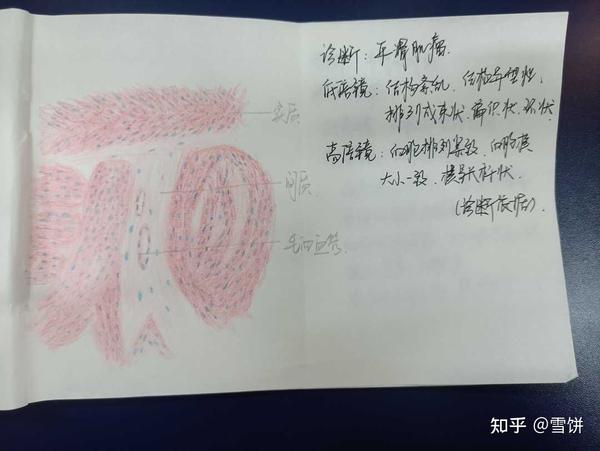 诊断：平滑肌瘤.
低倍镜：结构紊乱，结构异型性，
排列成束状、编织状、环状.
高倍镜：细胞排列紧密，细胞
大小一致、长杆状
(诊断依据).
实质
间质
毛细血管
知乎 @雪饼